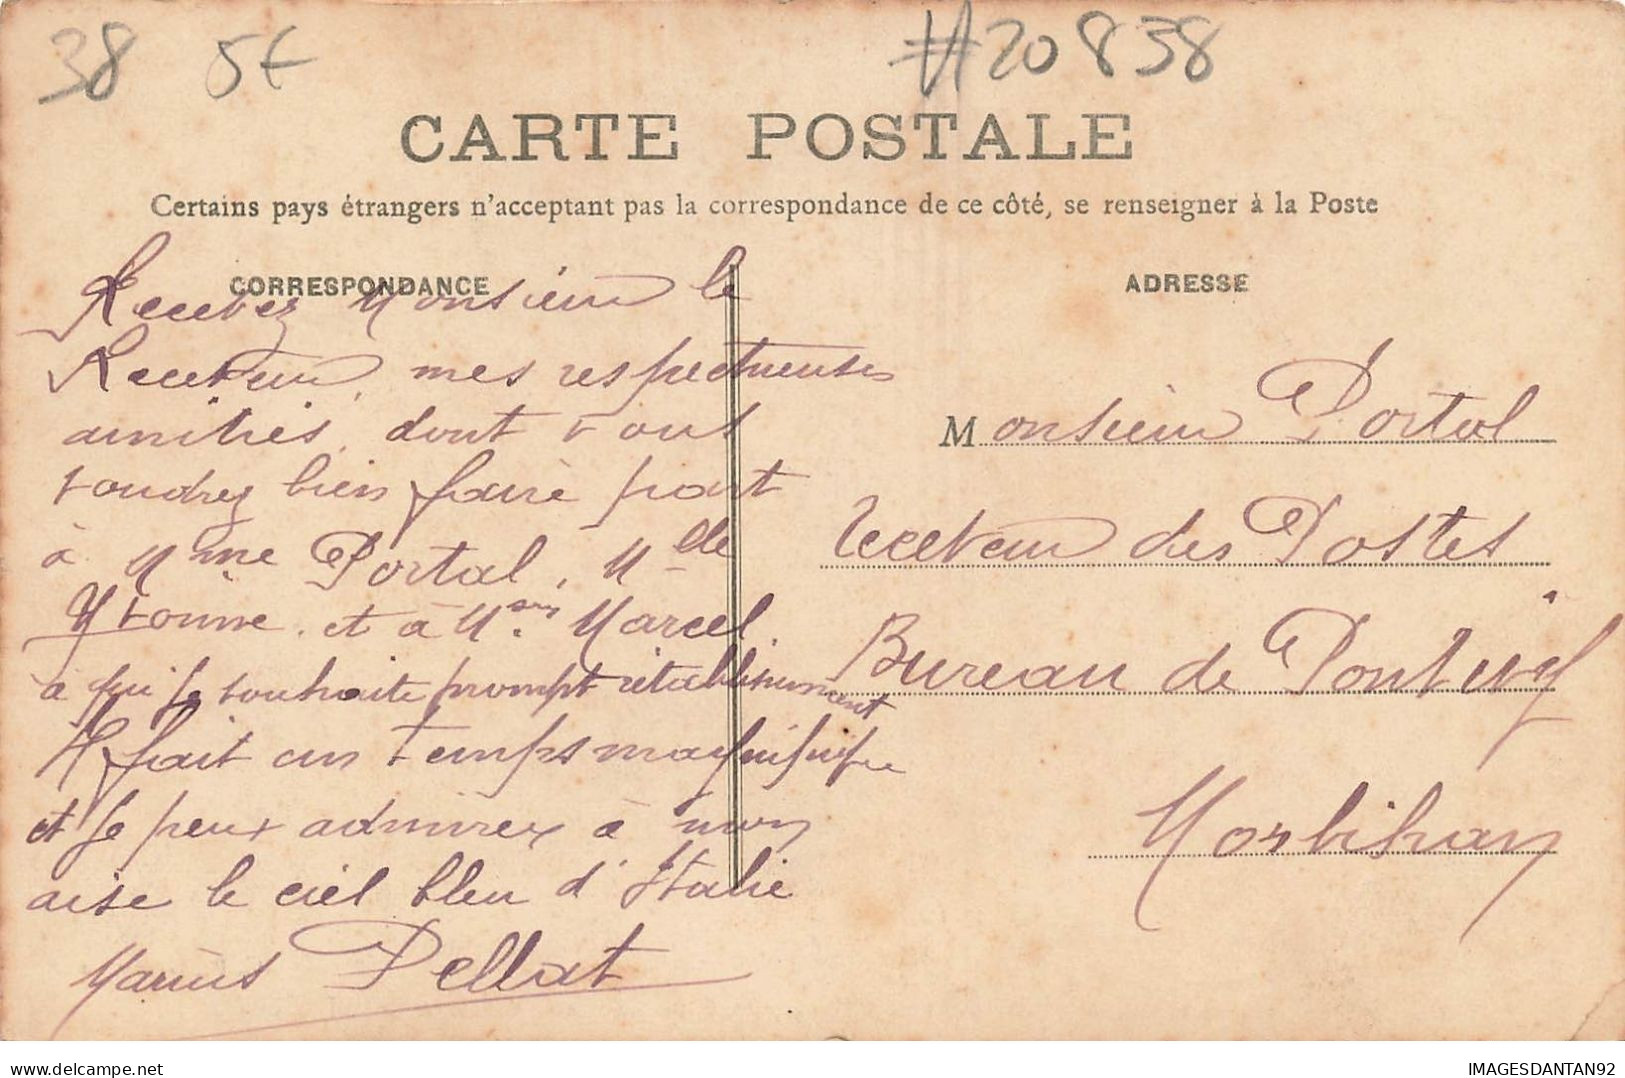 38 5€ #20838
CARTE POSTALE
Certains pays étrangers n'acceptant pas la correspondance de ce côté, se renseigner à la Poste
CORRESPONDANCE
Recevez Monsieur le
Receveur, mes respectueuses
amitiés, dont vous
voudrez bien faire part
à Mme Portal, Mlle
Yvonne, et à Mr. Marcel
à qui je souhaite prompt rétablissement
Il fait un temps magnifique
et je peux admirer à mon
aise le ciel bleu d'Italie
Marius Pellat
ADRESSE
Monsieur Portal
receveur des Postes
Bureau de Pontivy
Morbihan
IMAGESDANTAN92